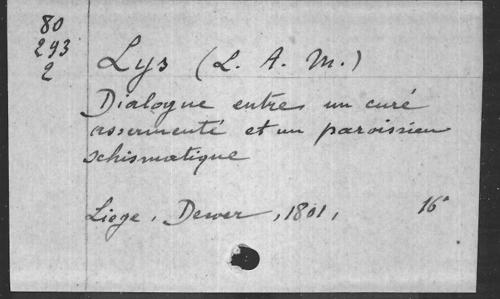 80
293
2
Lys (L. A. M.)
Dialogue entre un curé
assermenté et un paroissien
schismatique
Liege, Dewer, 1801, 16°